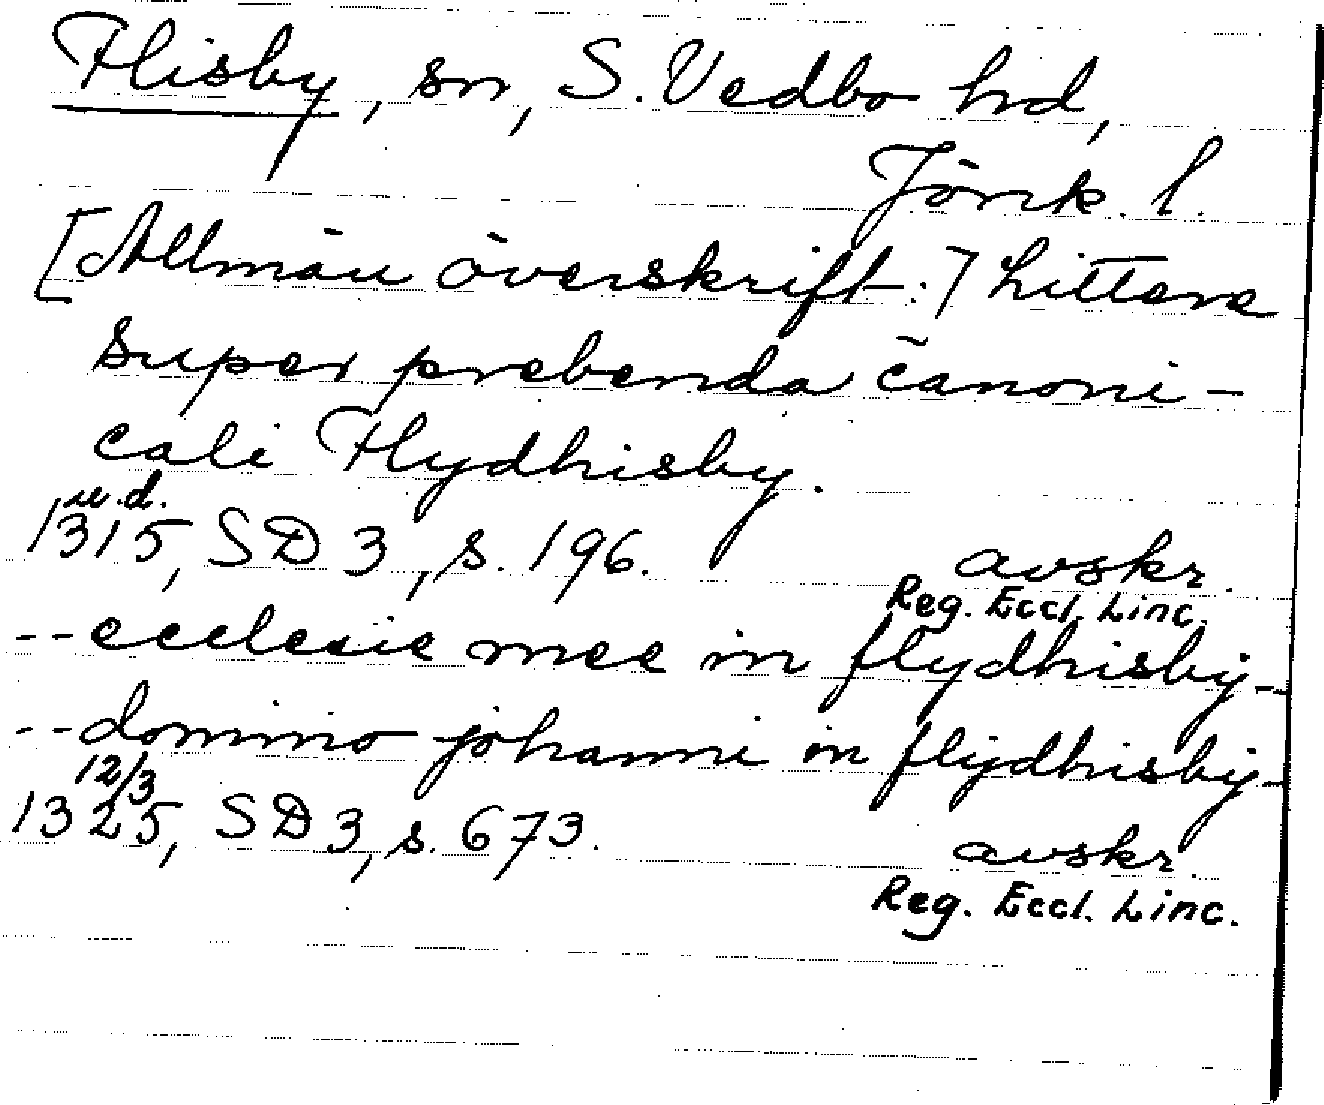 Flisby, sn, S. Vedbo hd,
Jönk. l.
[Allmän överskrift:] Littere
super prebenda canoni-
cali Flydhisby.
u.d.
1315, SD 3, s. 196. avskr.
Reg. Eccl. Linc.
-- ecclesie mee in flydhisby -
-- domino johanni in flydhisby -
12/3
1325, SD 3, s. 673. avskr.
Reg. Eccl. Linc.